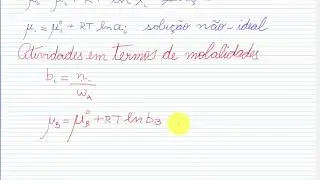 μᵢ = μᵢ° + RT ln aᵢ solução não-ideal
Atividades em termos de molalidades
bᵢ = nᵢ/w_A
μ_B = μ_B° + RT ln b_B